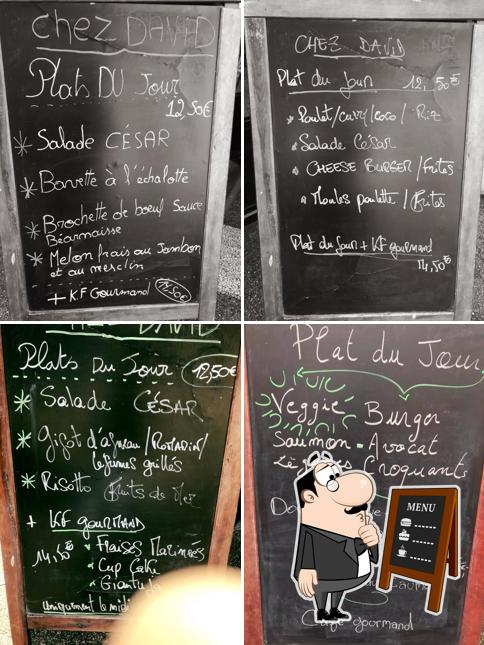 chez DAVID
Plats DU Jour
12,50€
Salade CÉSAR
Bavette à l'échalotte
Brochette de boeuf Sauce
Béarnaisse
Melon frais au Jambon
et au mesclun
+ KF Gourmand
CHEZ DAVID
Plat du Jour 12,50€
Poulet/curry/coco / Riz
Salade César
CHEESE BURGER / Frites
Moules poulette / Frites
Plat du Jour + KF gourmand
14,50€
CHEZ DAVID
Plats Du Jour 12,50€
Salade CÉSAR
Gigot d'agneau / ROMARIN /
légumes grillés
Risotto fruits de Mer
+ KF gourmand
14,50€
Fraises Marinées
Cup Cake
uniquement le midi
Plat du Jour
Veggie Burger
Saumon - Avocat
Croquants
MENU
Café gourmand